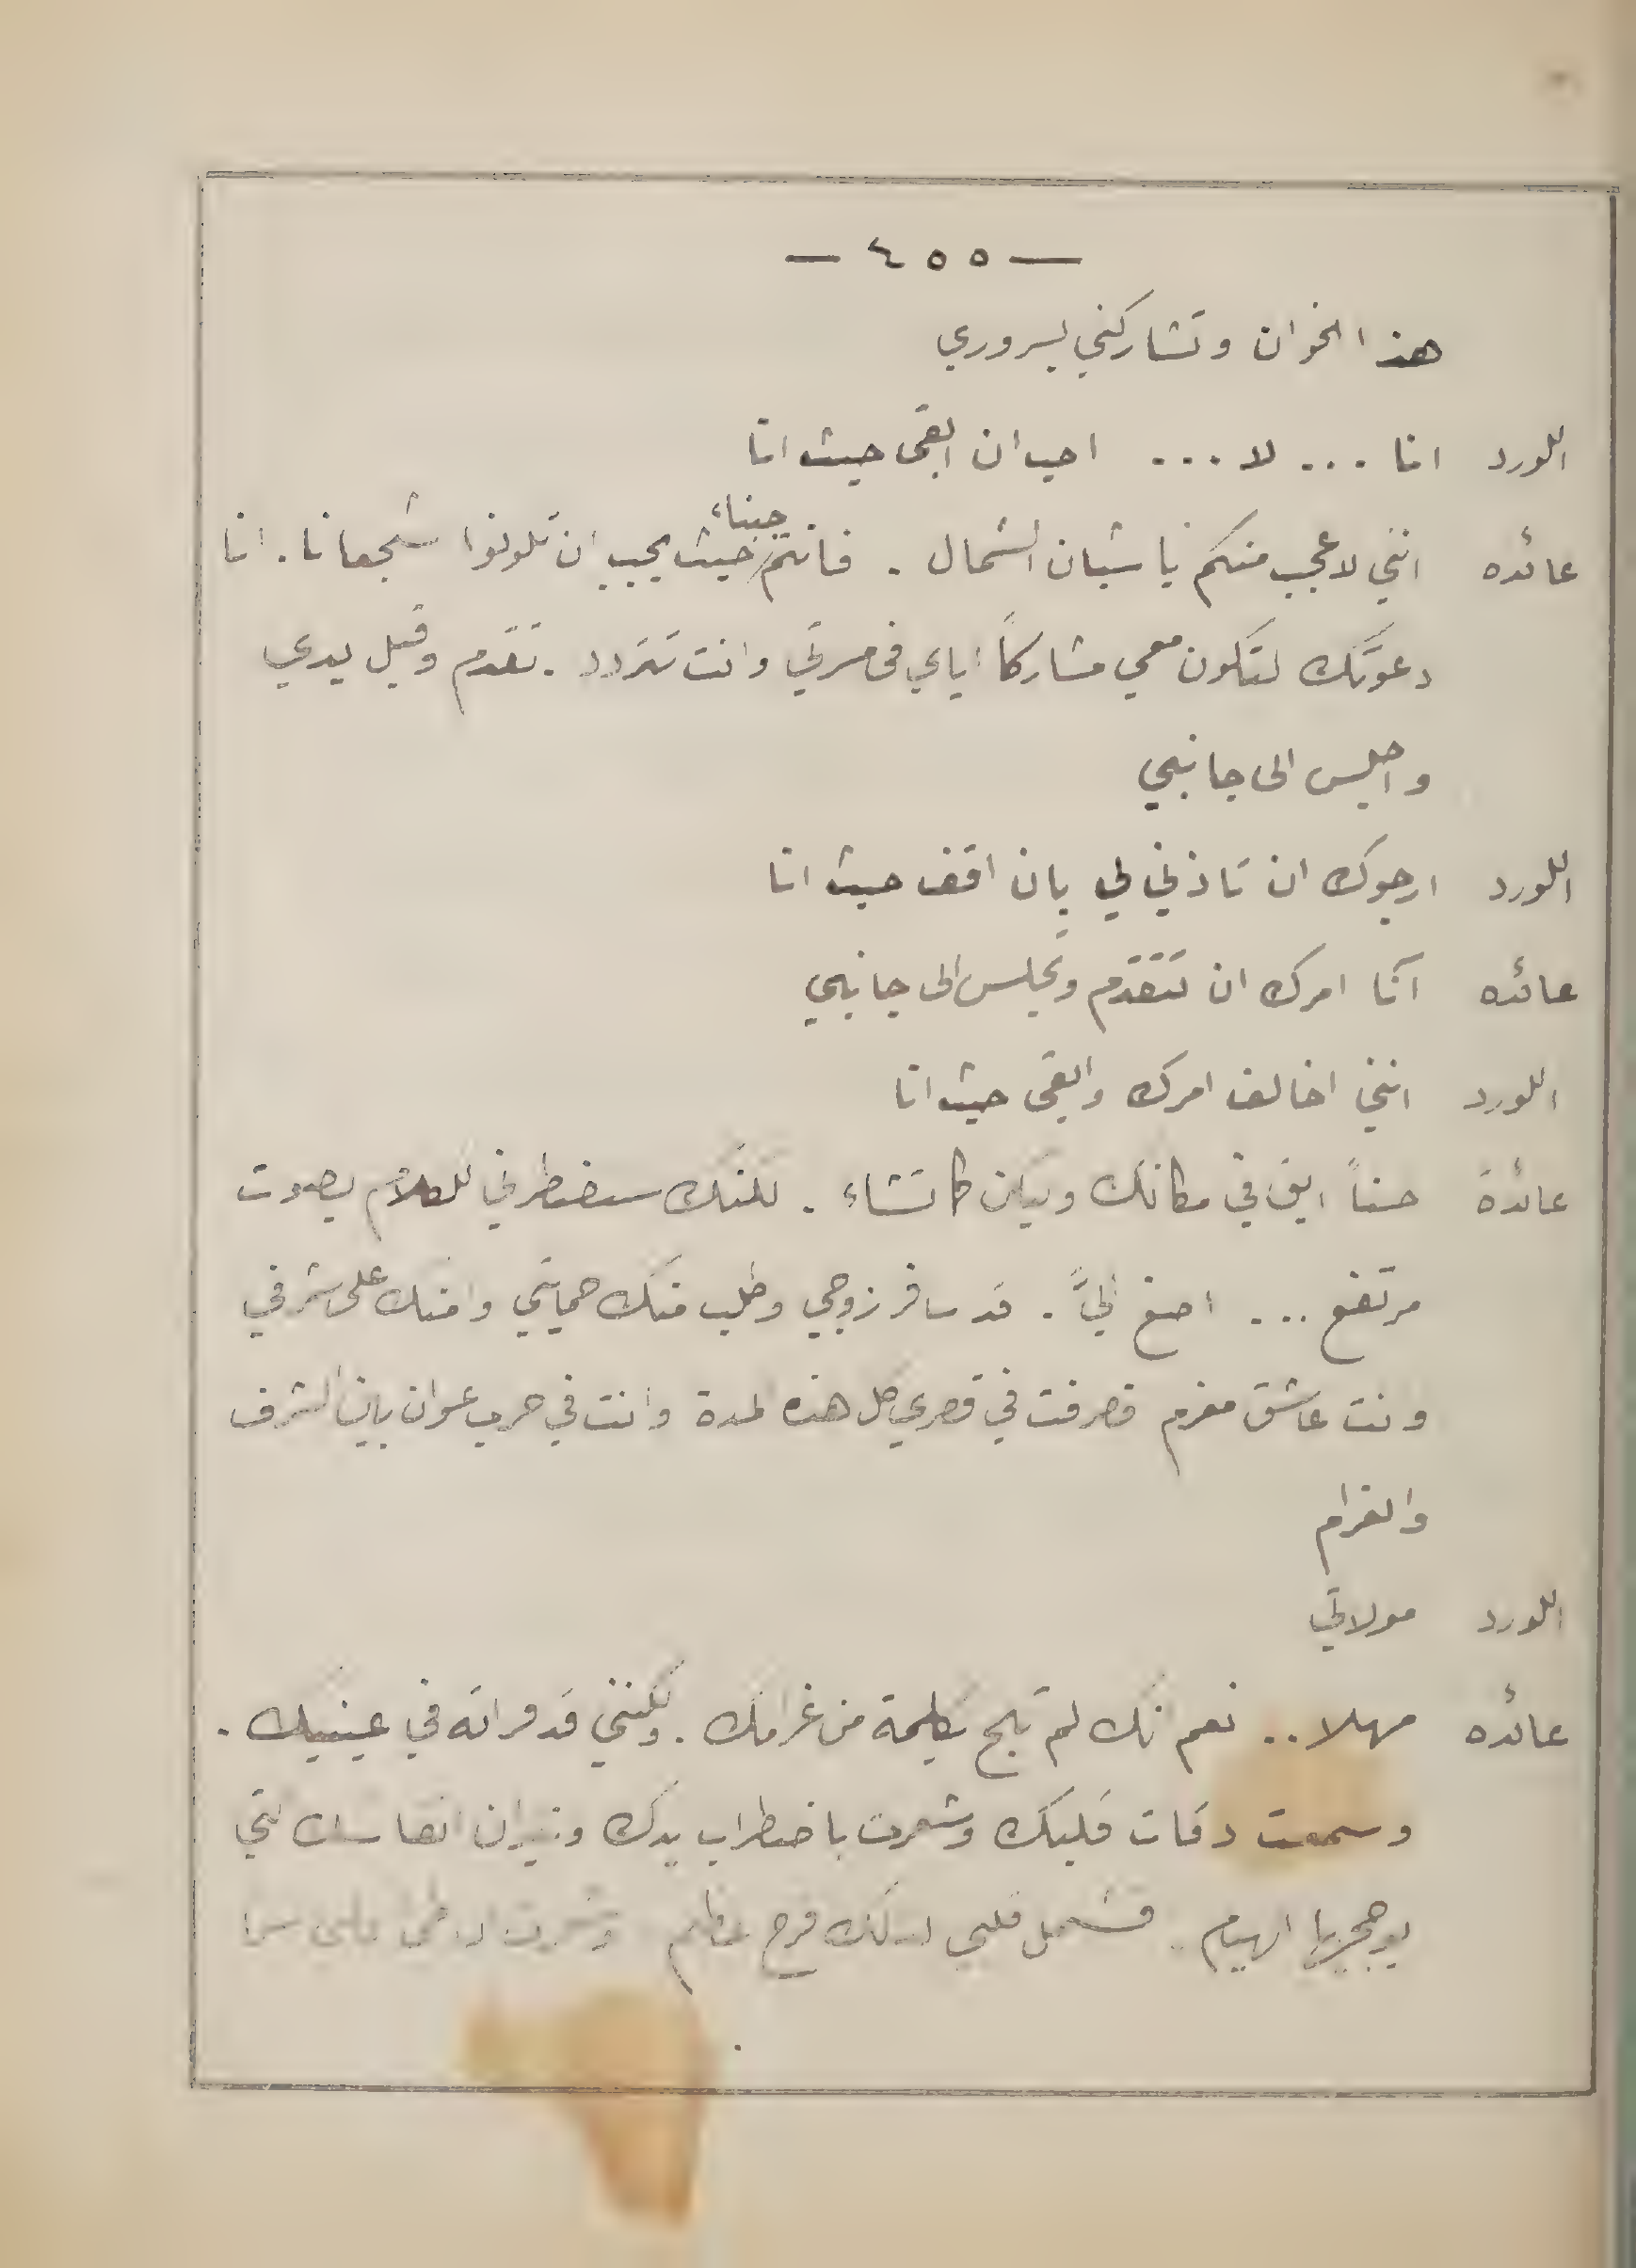 — ٤٥٥ —
هذا الخوان وتشاركني بسروري
اللورد انا ... لا ... احب ان ابقى حيث انا
عائده انني لاعجب منكم يا شبان الشمال . فانتم جبناء حيث يجب ان تكونوا شجعانا . انا
دعوتك لتكون معي مشاركاً اياي في مسرتي وانت تتردد . تقدم وقبل يدي
واجلس الى جانبي
اللورد ارجوك ان تاذني لي بان اقف حيث انا
عائده انا امرك ان تتقدم وتجلس الى جانبي
اللورد انني اخالف امرك وابقى حيث انا
عائدة حسناً ابق في مكانك وليكن كما تشاء . لكنك ستضطرني للكلام بصوت
مرتفع ... اصغ اليَّ . قد سافر زوجي وطلب منك حمايتي وامنك على شرفي
ونت عاشق مغرم فصرفت في قصري كل هذه المدة وانت في حرب عوان باين الشرف
والغرام
اللورد مولاتي
عائده مهلا .. نعم انك لم تبح بكلمة من غرامك . ولكنني قد قراته في عينيك .
وسمعت دقات قلبك وشعرت باضطراب يدك ونيران انفاسك التي
يوججها الهيام . فشمل قلبي لذلك فرح عظيم